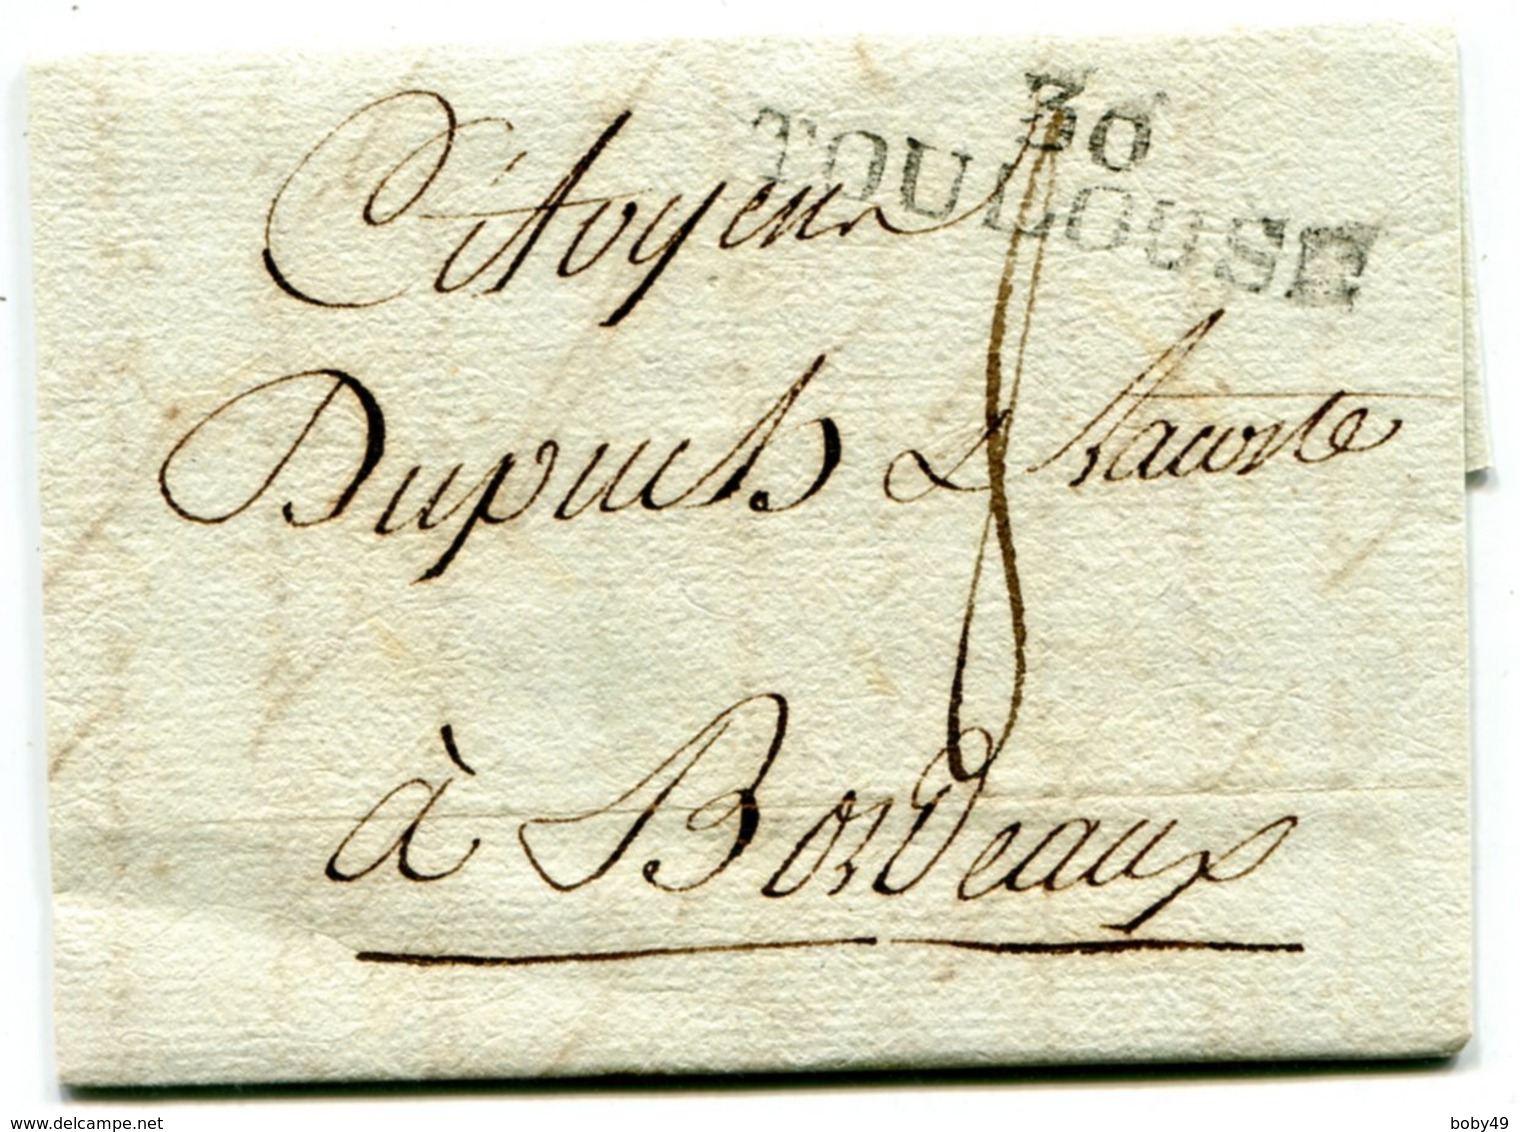 30
TOULOUSE
Citoyen
Dupuch & Lacoste
8
à Bordeaux
www.delcampe.net
boby49